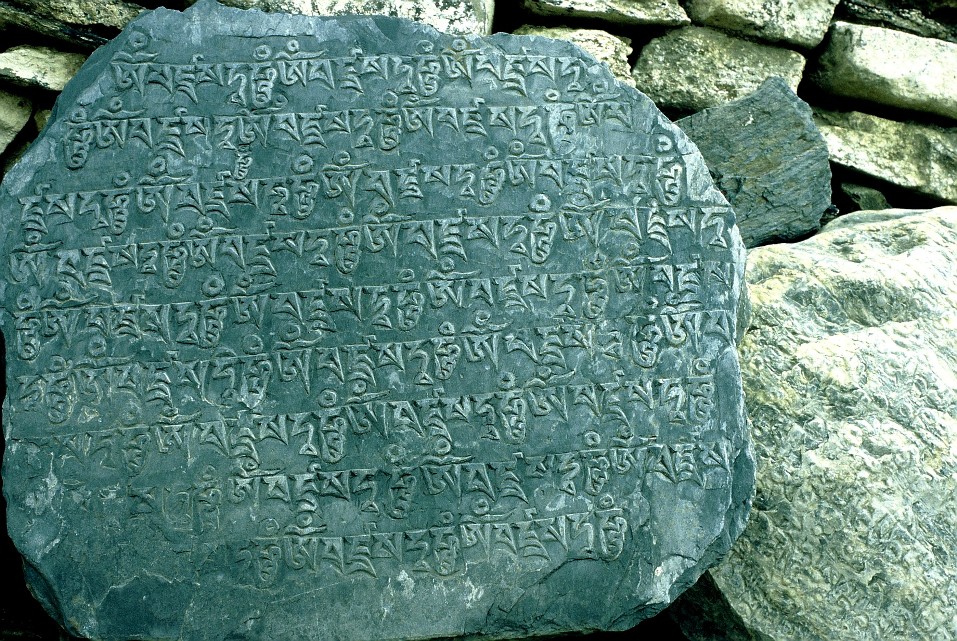 ཨོཾ་མ་ཎི་པ་དྨེ་ཧཱུྃ་ཨོཾ་མ་ཎི་པ་དྨེ་ཧཱུྃ་ཨོཾ་མ་ཎི་པ་དྨེ
ཧཱུྃ་ཨོཾ་མ་ཎི་པ་དྨེ་ཧཱུྃ་ཨོཾ་མ་ཎི་པ་དྨེ་ཧཱུྃ་ཨོཾ་མ་ཎི་པ་དྨེ་ཧཱུྃ་ཨོཾ་མ
ཎི་པ་དྨེ་ཧཱུྃ་ཨོཾ་མ་ཎི་པ་དྨེ་ཧཱུྃ་ཨོཾ་མ་ཎི་པ་དྨེ་ཧཱུྃ་ཨོཾ་མ་ཎི་པ་དྨེ་ཧཱུྃ
ཨོཾ་མ་ཎི་པ་དྨེ་ཧཱུྃ་ཨོཾ་མ་ཎི་པ་དྨེ་ཧཱུྃ་ཨོཾ་མ་ཎི་པ་དྨེ་ཧཱུྃ་ཨོཾ་མ་ཎི་པ་དྨེ
ཧཱུྃ་ཨོཾ་མ་ཎི་པ་དྨེ་ཧཱུྃ་ཨོཾ་མ་ཎི་པ་དྨེ་ཧཱུྃ་ཨོཾ་མ་ཎི་པ་དྨེ་ཧཱུྃ་ཨོཾ་མ་ཎི་པ
དྨེ་ཧཱུྃ་ཨོཾ་མ་ཎི་པ་དྨེ་ཧཱུྃ་ཨོཾ་མ་ཎི་པ་དྨེ་ཧཱུྃ་ཨོཾ་མ་ཎི་པ་དྨེ་ཧཱུྃ་ཨོཾ་མ
པ་དྨེ་ཧཱུྃ་ཨོཾ་མ་ཎི་པ་དྨེ་ཧཱུྃ་ཨོཾ་མ་ཎི་པ་དྨེ་ཧཱུྃ་ཨོཾ་མ་ཎི་པ་དྨེ་ཧཱུྃ
པ་དྨེ་ཧཱུྃ་ཨོཾ་མ་ཎི་པ་དྨེ་ཧཱུྃ་ཨོཾ་མ་ཎི་པ་དྨེ་ཧཱུྃ་ཨོཾ་མ་ཎི་པ
ཧཱུྃ་ཨོཾ་མ་ཎི་པ་དྨེ་ཧཱུྃ་ཨོཾ་མ་ཎི་པ་དྨེ་ཧཱུྃ